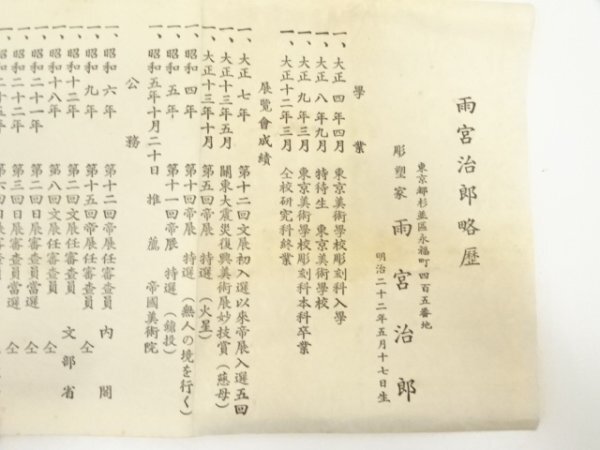 雨宮治郎略歴
東京都杉並區永福町四百五番地
彫塑家 雨宮治郎
明治二十二年五月十七日生
學業
一、大正四年四月 東京美術學校彫刻科入學
一、大正八年九月 特待生 東京美術學校
一、大正九年三月 東京美術學校彫刻科本科卒業
一、大正十二年三月 仝校研究科終業
展覧會成績
一、大正七年 第十二回文展初入選以來帝展入選五回
一、大正十三年五月 關東大震災復興美術展妙技賞(慈母)
一、大正十三年十月 第五回帝展 特選(火星)
一、昭和四年 第十回帝展 特選(無人の境を行く)
一、昭和五年 第十一回帝展 特選(績投)
一、昭和五年十月二十日 推薦 帝國美術院
公務
一、昭和六年 第十二回帝展任審査員 内閣
一、昭和九年 第十五回帝展任審査員 仝
一、昭和十二年 第二回文展任審査員 文部省
一、昭和十八年 第八回文展任審査員 仝
一、昭和二十一年 第二回日展審査員當選
一、昭和二十二年 第三回日展審査員當選 仝
昭和二十五年 第六回日展審査員